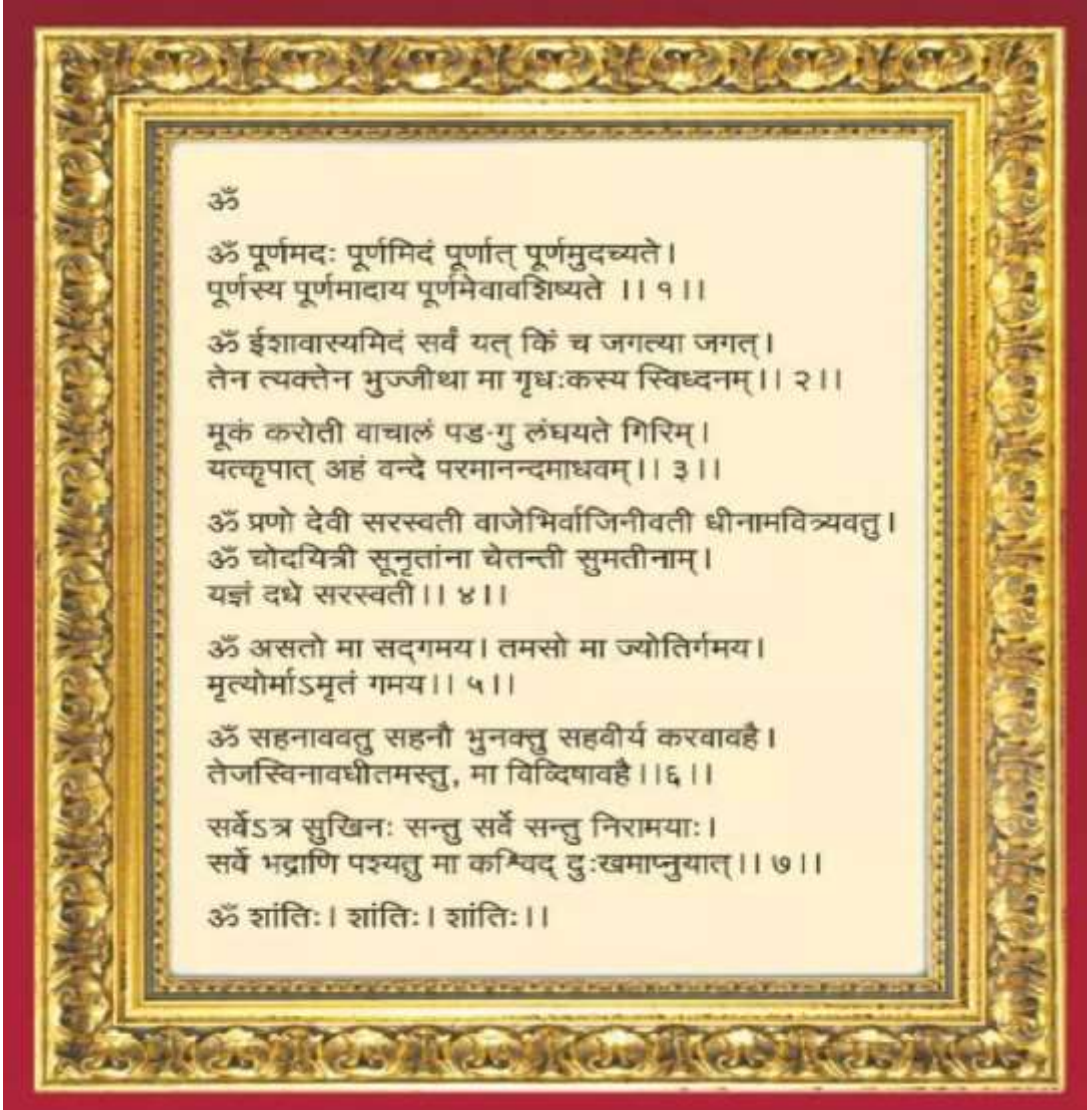 ॐ
ॐ पूर्णमदः पूर्णमिदं पूर्णात् पूर्णमुदच्यते।
पूर्णस्य पूर्णमादाय पूर्णमेवावशिष्यते ।। १।।
ॐ ईशावास्यमिदं सर्वं यत् किं च जगत्या जगत्।
तेन त्यक्तेन भुज्जीथा मा गृधःकस्य स्विध्दनम्।। २।।
मूकं करोती वाचालं पड·गु लंघयते गिरिम्।
यत्कृपात् अहं वन्दे परमानन्दमाधवम्।। ३।।
ॐ प्रणो देवी सरस्वती वाजेभिर्वाजिनीवती धीनामवित्र्यवतु।
ॐ चोदयित्री सूनृतांना चेतन्ती सुमतीनाम्।
यज्ञं दधे सरस्वती।। ४।।
ॐ असतो मा सद्गमय। तमसो मा ज्योतिर्गमय।
मृत्योर्माऽमृतं गमय।। ५।।
ॐ सहनाववतु सहनौ भुनक्तु सहवीर्य करवावहै।
तेजस्विनावधीतमस्तु, मा विव्दिषावहै।।६।।
सर्वेऽत्र सुखिनः सन्तु सर्वे सन्तु निरामयाः।
सर्वे भद्राणि पश्यतु मा कश्विद् दुःखमाप्नुयात्।। ७।।
ॐ शांतिः। शांतिः। शांतिः।।